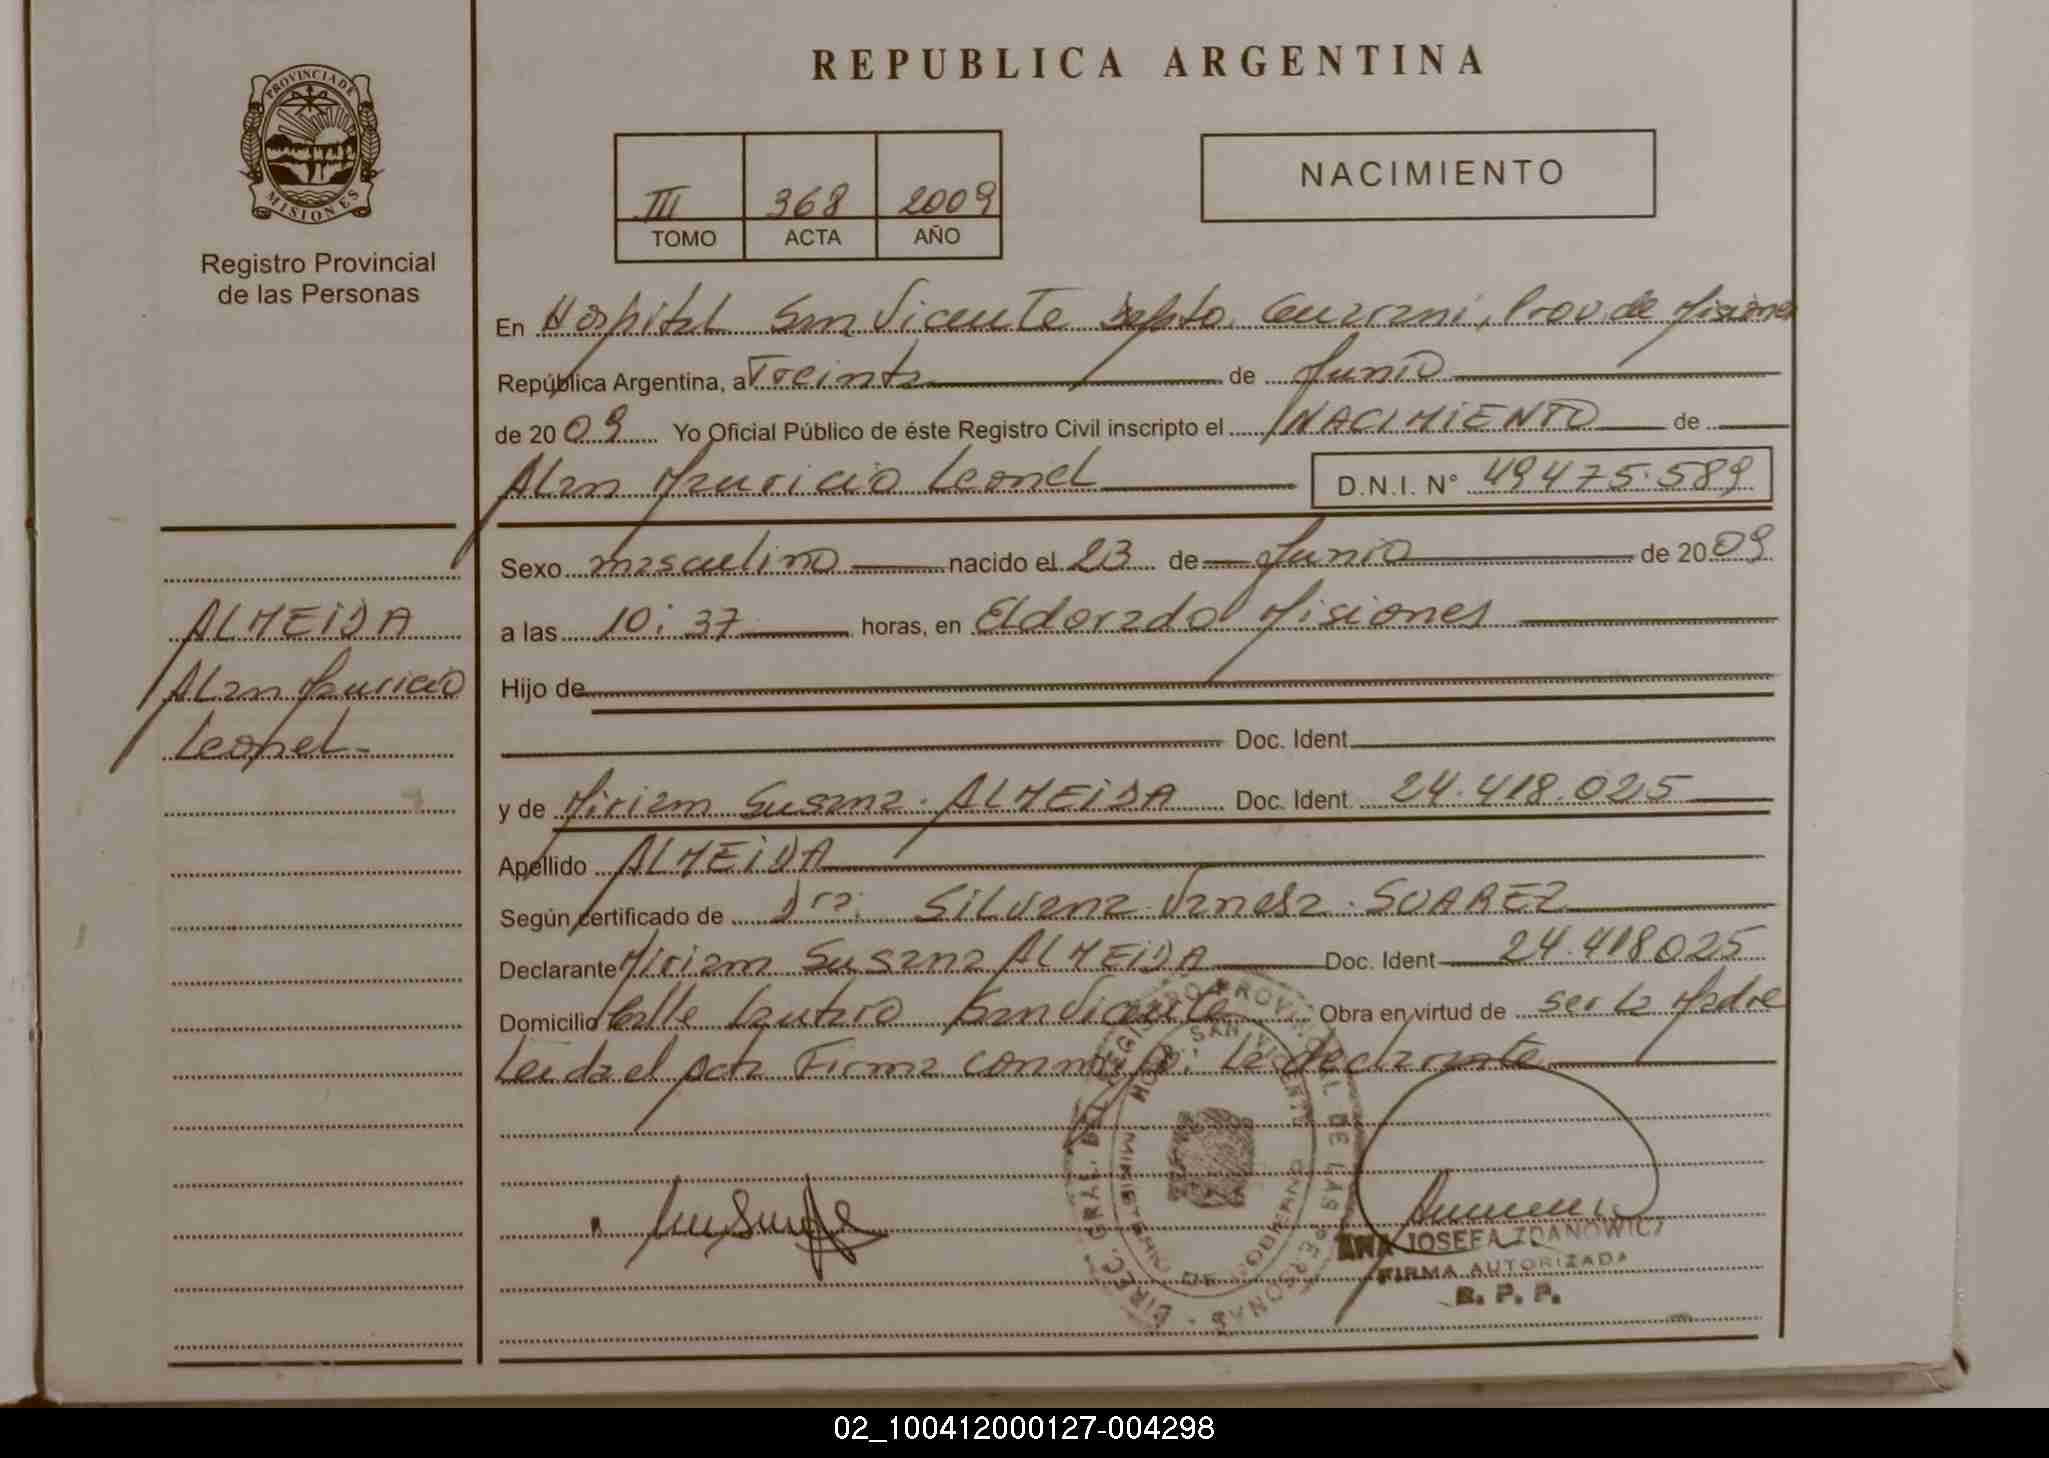 REPUBLICA ARGENTINA
PROVINCIA DE
MISIONES
Registro Provincial
de las Personas
III 368 2009
TOMO ACTA AÑO
NACIMIENTO
En Hospital San Vicente Depto. Guarani, Prov. de Misiones
República Argentina, a Treinta de Junio
de 2009 Yo Oficial Público de éste Registro Civil inscripto el NACIMIENTO de
Alan Mauricio Leonel D.N.I. N° 49475.589
Sexo masculino nacido el 23 de Junio de 2009
a las 10:37 horas, en Eldorado Misiones
Hijo de
Doc. Ident.
y de Miriam Susana. ALMEIDA Doc. Ident. 24.418.025
Apellido ALMEIDA
Según certificado de Dra. Silvana Vanesa. SUAREZ
Declarante Miriam Susana ALMEIDA Doc. Ident 24.418025
Domicilio Calle Lautaro San Vicente Obra en virtud de ser la Madre
Leida el acta Firma conmigo: La declarante
ALMEIDA
Alan Mauricio
Leonel-
DIREC. GRAL. DEL REGISTRO PROVINCIAL DE LAS PERSONAS
HOSP. SAN VICENTE
MINISTERIO DE GOBIERNO
ANA JOSEFA ZDANOWICZ
FIRMA AUTORIZADA
R. P. P.
02_100412000127-004298